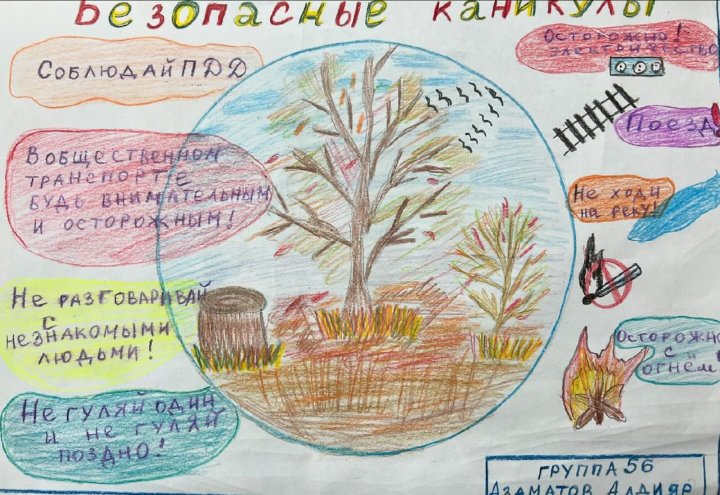 Безопасные каникулы
Соблюдай ПДД
В общественном
транспорте
будь внимательным
и осторожным!
Не разговаривай
с
незнакомыми
людьми!
Не гуляй один
и не гуляй
поздно!
Осторожно!
электричество
Поезд
Не ходи
на реку!
Осторожно
с
огнём!
группа 56
Азаматов Алдияр